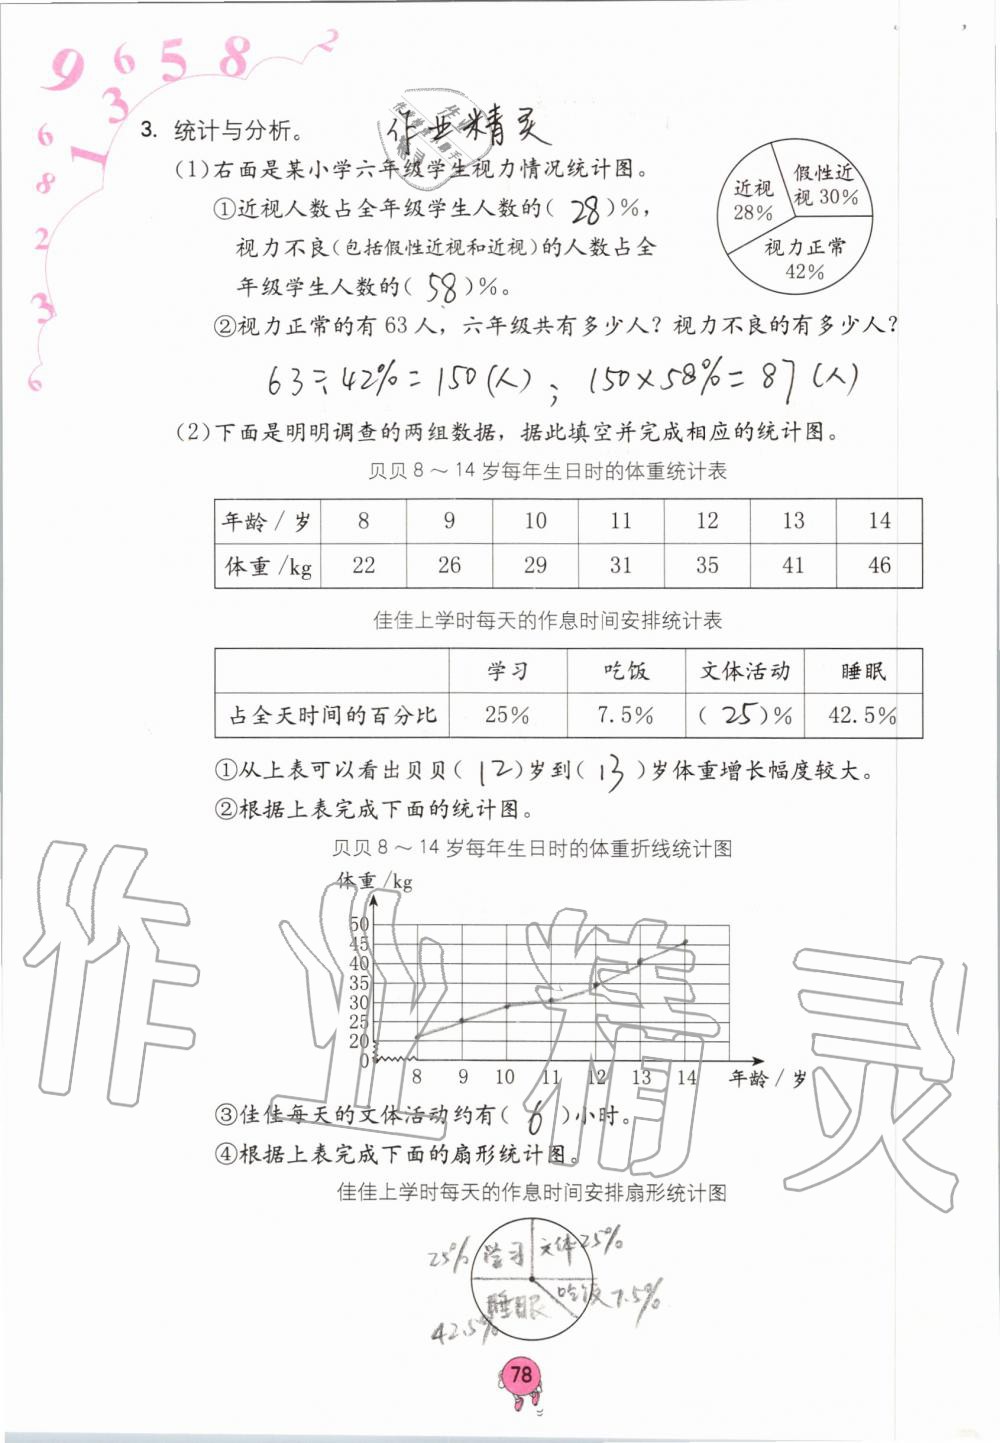 9 6 5 8 2
3
1
6
8
2
3
6
作业精灵
3. 统计与分析。
(1)右面是某小学六年级学生视力情况统计图。
近视
28%
假性近
视 30%
视力正常
42%
①近视人数占全年级学生人数的( 28 )%，
视力不良(包括假性近视和近视)的人数占全
年级学生人数的( 58 )%。
②视力正常的有 63 人，六年级共有多少人？视力不良的有多少人？
63÷42%=150(人)；150×58%=87(人)
(2)下面是明明调查的两组数据，据此填空并完成相应的统计图。
贝贝 8～14 岁每年生日时的体重统计表
年龄/岁 8 9 10 11 12 13 14
体重/kg 22 26 29 31 35 41 46
佳佳上学时每天的作息时间安排统计表
学习 吃饭 文体活动 睡眠
占全天时间的百分比 25% 7.5% ( 25 )% 42.5%
①从上表可以看出贝贝( 12 )岁到( 13 )岁体重增长幅度较大。
②根据上表完成下面的统计图。
贝贝 8～14 岁每年生日时的体重折线统计图
体重/kg
50
45
40
35
30
25
20
0
8 9 10 11 12 13 14 年龄/岁
③佳佳每天的文体活动约有( 6 )小时。
④根据上表完成下面的扇形统计图。
佳佳上学时每天的作息时间安排扇形统计图
25% 学习 文体 25%
睡眠 吃饭 7.5%
42.5%
78
作业精灵